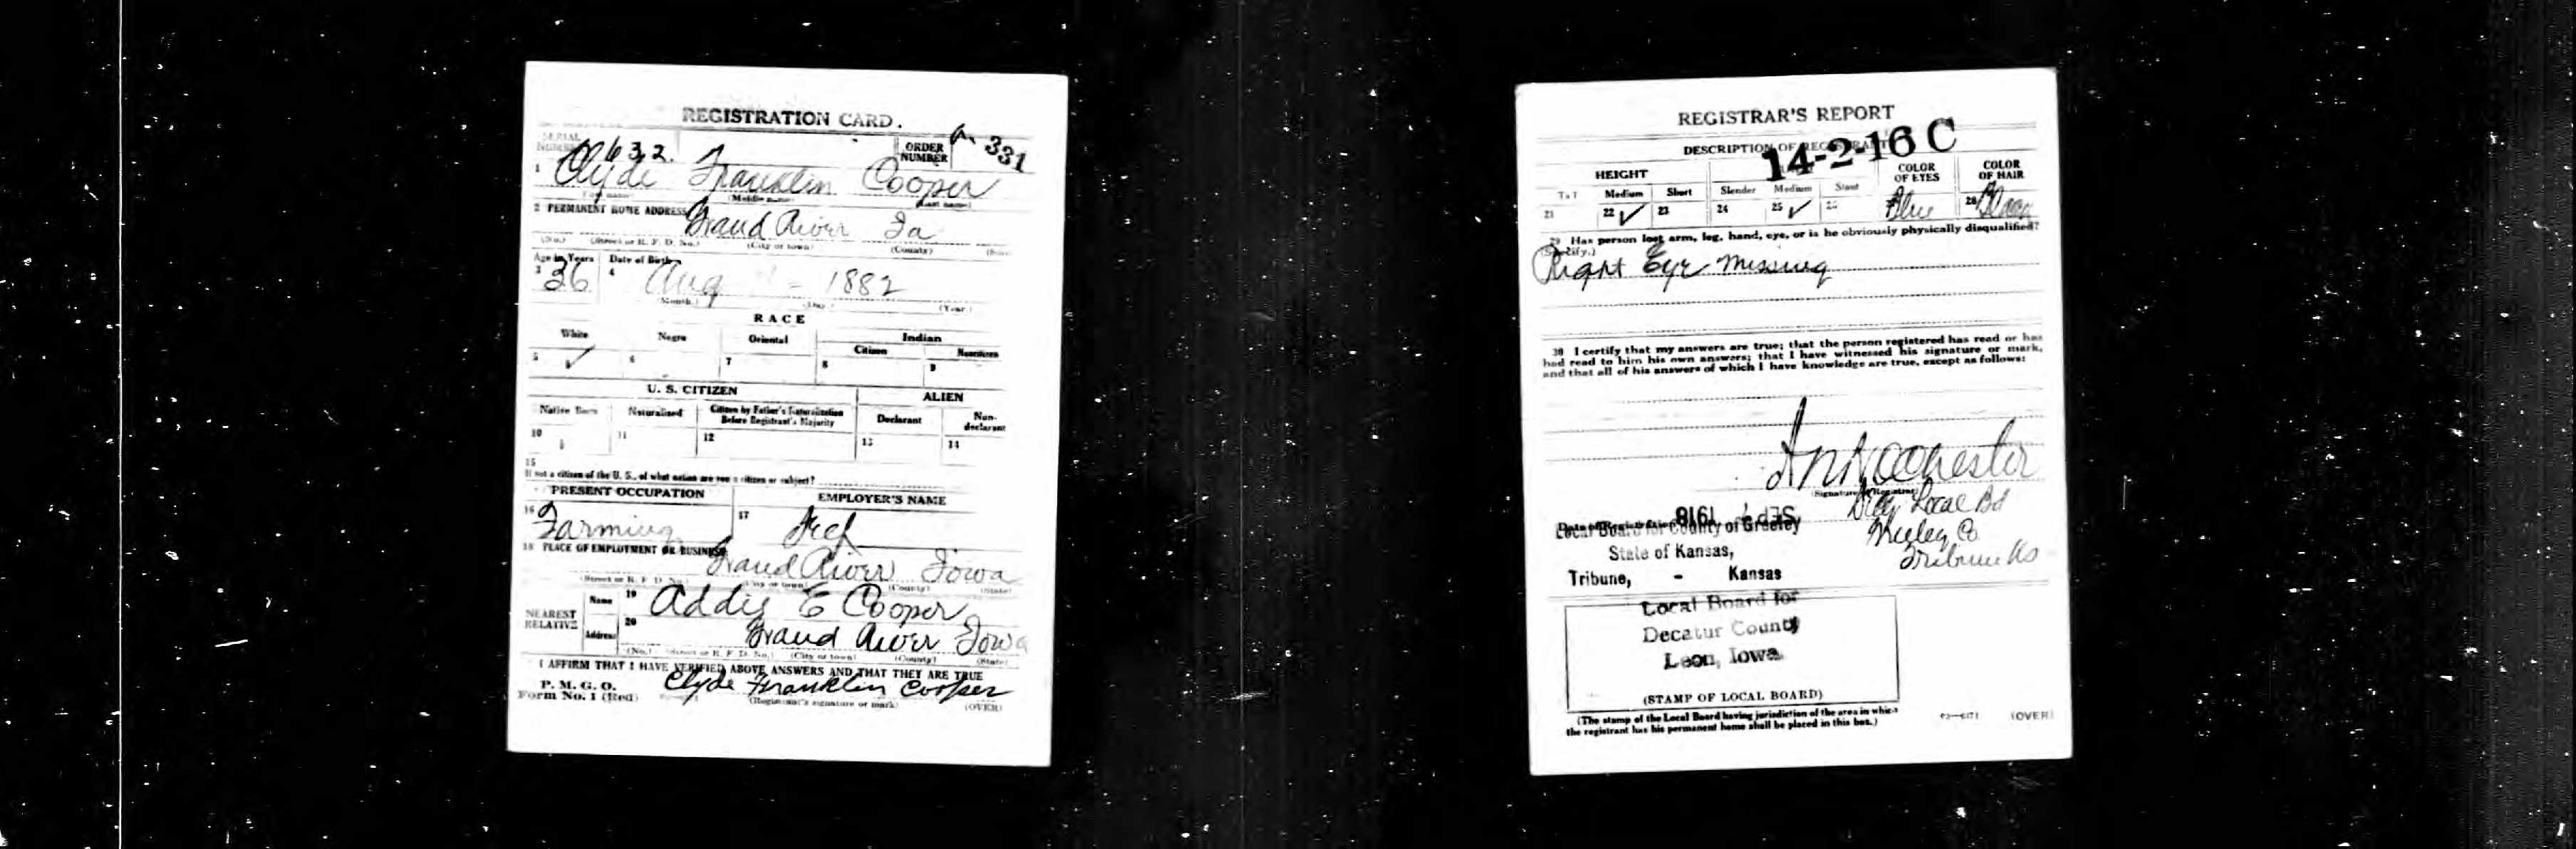 REGISTRATION CARD.
SERIAL NUMBER 632. ORDER NUMBER A 331
1 Clyde Franklin Cooper
(First name) (Middle name) (Last name)
2 PERMANENT HOME ADDRESS Grand River Ia
(No.) (Street or R. F. D. No.) (City or town) (County) (State)
Age in Years Date of Birth
3 36 4 Aug - 1882
(Month.) (Day.) (Year.)
RACE
White Negro Oriental Indian
Citizen Noncitizen
5 ✓ 6 7 8 9
U. S. CITIZEN ALIEN
Native Born Naturalized Citizen by Father's Naturalization Before Registrant's Majority Declarant Non-declarant
10 11 12 13 14
15
If not a citizen of the U. S., of what nation are you a citizen or subject?
PRESENT OCCUPATION EMPLOYER'S NAME
16 Farming 17
18 PLACE OF EMPLOYMENT OR BUSINESS
Grand River Iowa
(Street or R. F. D. No.) (City or town) (County) (State)
NEAREST RELATIVE Name 19 Addie E Cooper
Address 20 Grand River Iowa
(No.) (Street or R. F. D. No.) (City or town) (County) (State)
I AFFIRM THAT I HAVE VERIFIED ABOVE ANSWERS AND THAT THEY ARE TRUE
P. M. G. O.
Form No. 1 (Red) Clyde Franklin Cooper
(Registrant's signature or mark) (OVER)
REGISTRAR'S REPORT
14-2-16 C
DESCRIPTION OF REGISTRANT
HEIGHT COLOR OF EYES COLOR OF HAIR
Tall Medium Short Slender Medium Stout
21 22 ✓ 23 24 25 ✓ 26 Blue 28
29 Has person lost arm, leg, hand, eye, or is he obviously physically disqualified?
(Specify.)
Right Eye Missing
30 I certify that my answers are true; that the person registered has read or has
had read to him his own answers; that I have witnessed his signature or mark,
and that all of his answers of which I have knowledge are true, except as follows:
(Signature of Registrar)
Local Bd
Greeley Co
Tribune Ks
Date of Registration SEP 1918
Local Board for County of Greeley
State of Kansas,
Tribune, - Kansas
Local Board for
Decatur County
Leon, Iowa
(STAMP OF LOCAL BOARD)
(The stamp of the Local Board having jurisdiction of the area in which
the registrant has his permanent home shall be placed in this box.)
03—6171 (OVER)